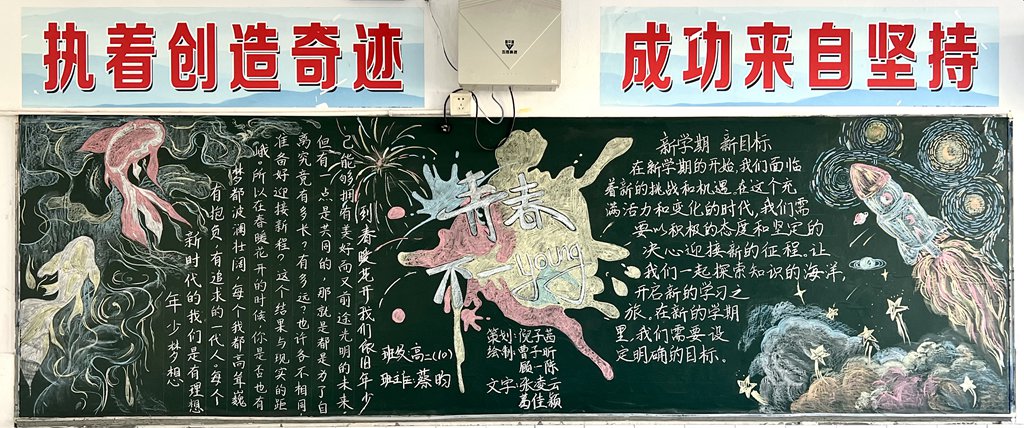 执着创造奇迹
成功来自坚持
年少梦想
新时代的我们是有理想
有抱负,有追求的一代人。每个人
梦都波澜壮阔,每个我都高耸巍
峨。所以在春暖花开的时候,你是否也有
准备好迎接新程?这个结果与现实的距
离究竟有多长?有多远?也许各不相同
但有一点是共同的 那就是都是为了自
己能够拥有美好而又前途光明的未来
到春暖花开我们依旧年少
青春
不一young
班级:高二(10)
班主任:蔡昀
策划:倪子茜
绘制:曹子昕
顾一陈
文字:张凌云
葛佳颖
新学期 新目标
在新学期的开始,我们面临
着新的挑战和机遇。在这个充
满活力和变化的时代,我们需
要以积极的态度和坚定的
决心迎接新的征程。让
我们一起探索知识的海洋,
开启新的学习之
旅。在新的学期
里,我们需要设
定明确的目标。